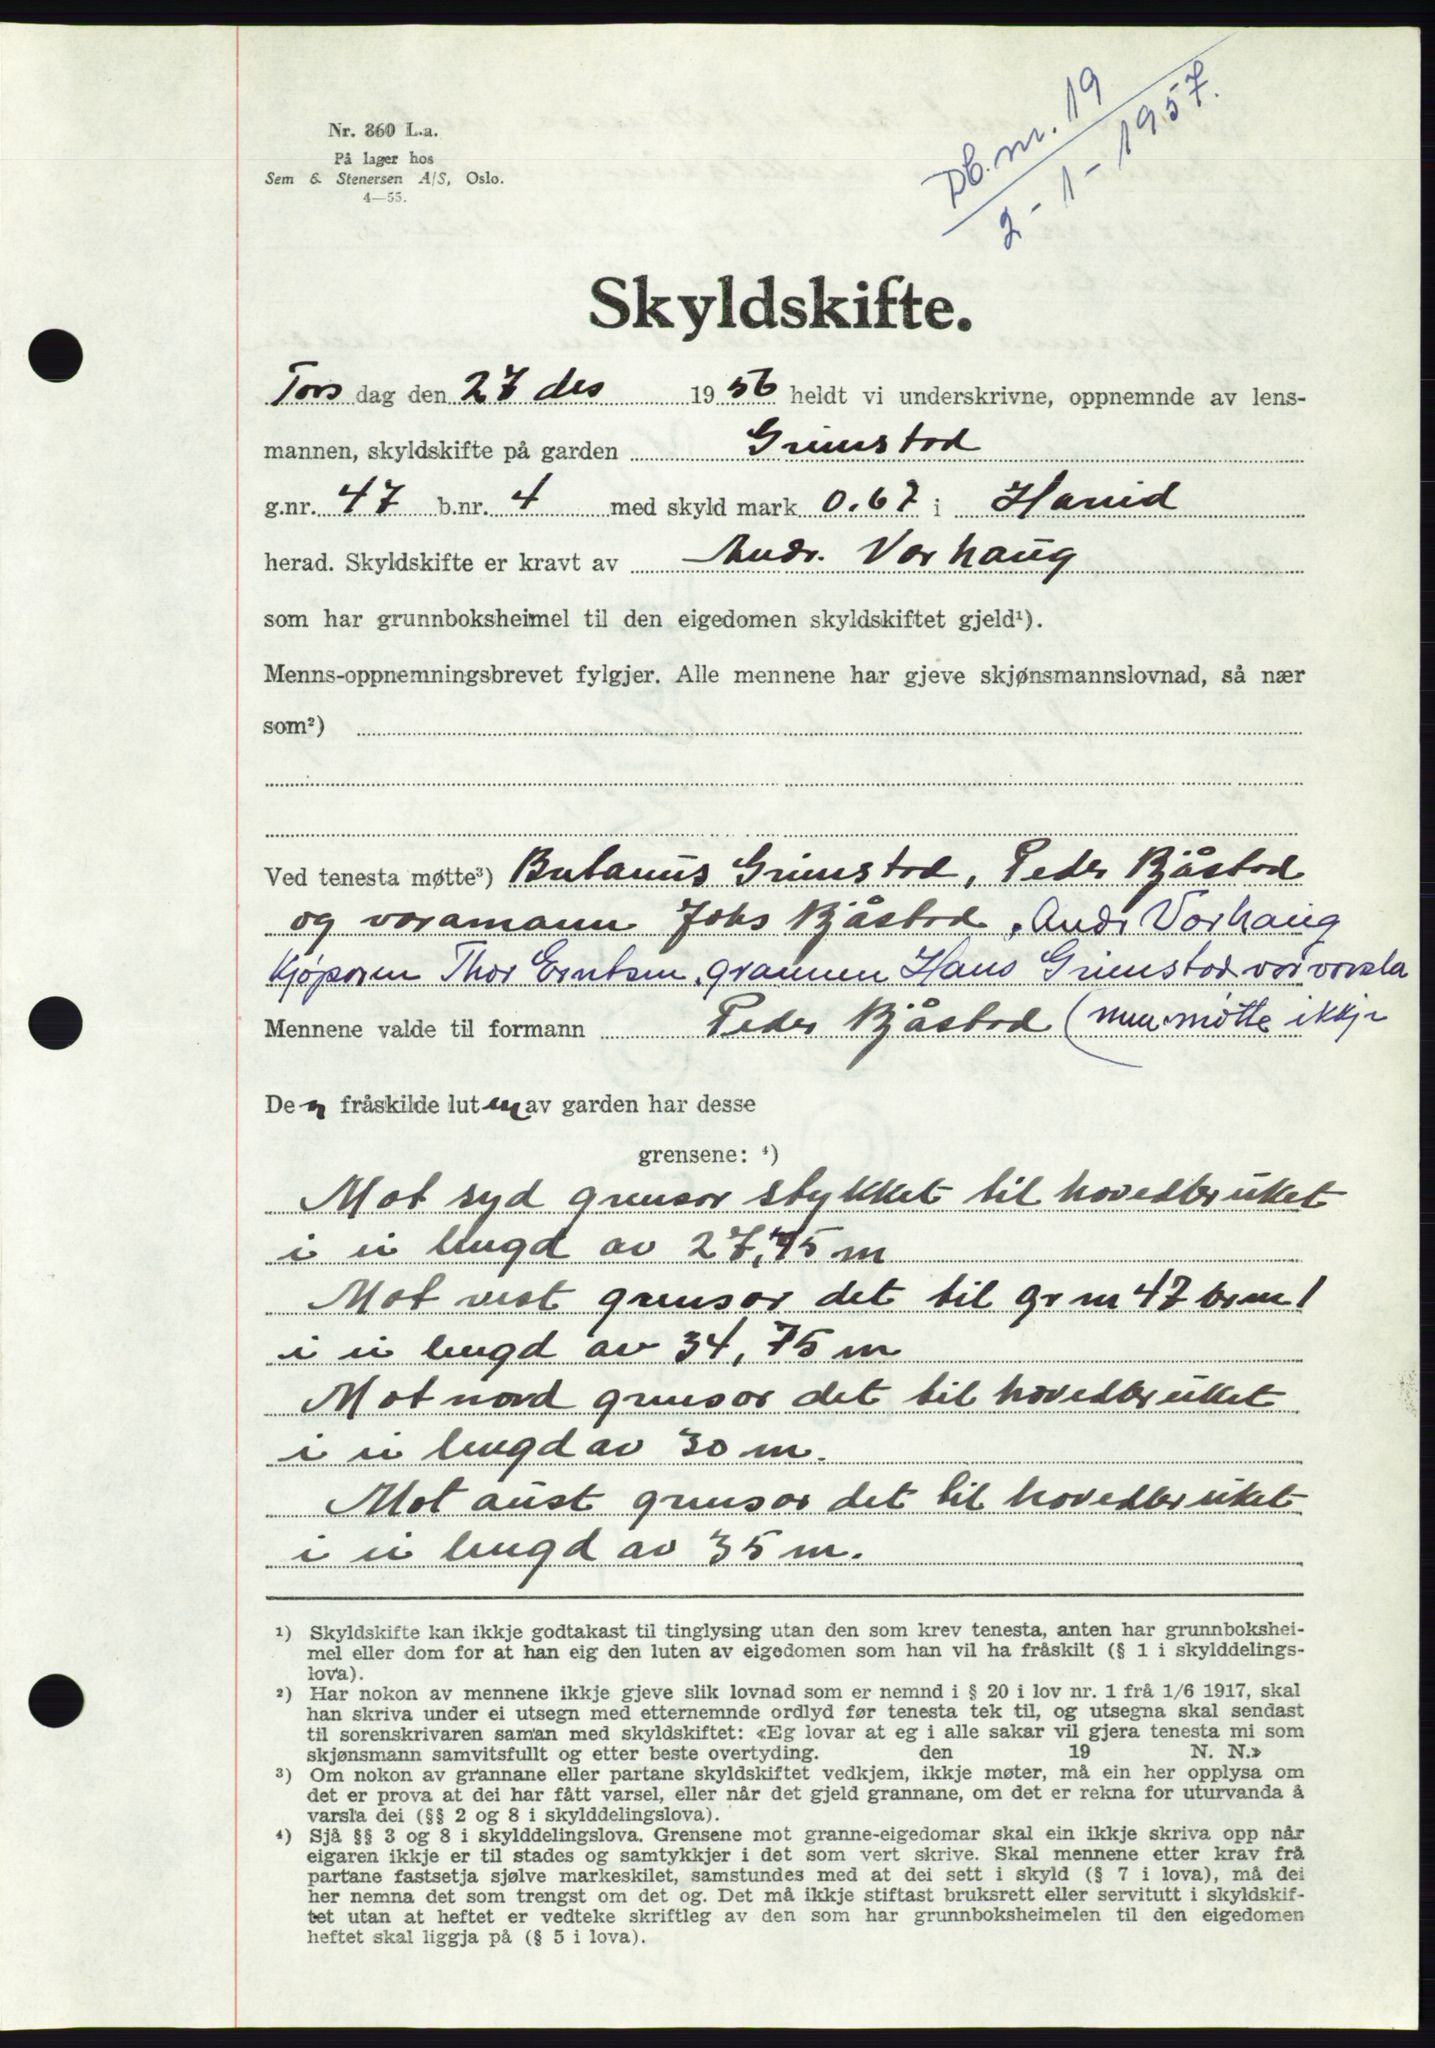 Db. nr. 19
2-1-1957.
Nr. 360 L.a.
På lager hos
Sem & Stenersen A/S, Oslo.
4—55.
Skyldskifte.
Tors dag den 27 des 1956 heldt vi underskrivne, oppnemnde av lens-
mannen, skyldskifte på garden Grimstad
g.nr. 47 b.nr. 4 med skyld mark 0.67 i Hareid
herad. Skyldskifte er kravt av Andr. Varhaug
som har grunnboksheimel til den eigedomen skyldskiftet gjeld¹).
Menns-oppnemningsbrevet fylgjer. Alle mennene har gjeve skjønsmannslovnad, så nær
som²)
Ved tenesta møtte³) Grimstad, Peder Bjåstad
og varamann Johs Bjåstad, Andr Varhaug
Kjøparen Thor Erntsen, grannen Hans Grimstad var varsla
Mennene valde til formann Peder Bjåstad (men møtte ikkje
Den fråskilde luten av garden har desse
grensene: ⁴)
Mot syd grensar stykket til hovedbruket
i ei lengd av 27,75 m
Mot vest grensar det til gr nr 47 br nr 1
i ei lengd av 34,75 m
Mot nord grensar det til hovedbruket
i ei lengd av 30 m.
Mot aust grensar det til hovedbruket
i ei lengd av 35 m.
¹) Skyldskifte kan ikkje godtakast til tinglysing utan den som krev tenesta, anten har grunnbokshei-
mel eller dom for at han eig den luten av eigedomen som han vil ha fråskilt (§ 1 i skylddelings-
lova).
²) Har nokon av mennene ikkje gjeve slik lovnad som er nemnd i § 20 i lov nr. 1 frå 1/6 1917, skal
han skriva under ei utsegn med etternemnde ordlyd før tenesta tek til, og utsegna skal sendast
til sorenskrivaren saman med skyldskiftet: «Eg lovar at eg i alle sakar vil gjera tenesta mi som
skjønsmann samvitsfullt og etter beste overtyding. den 19 N. N.»
³) Om nokon av grannane eller partane skyldskiftet vedkjem, ikkje møter, må ein her opplysa om
det er prova at dei har fått varsel, eller når det gjeld grannane, om det er rekna for uturvanda å
varsla dei (§§ 2 og 8 i skylddelingslova).
⁴) Sjå §§ 3 og 8 i skylddelingslova. Grensene mot granne-eigedomar skal ein ikkje skriva opp når
eigaren ikkje er til stades og samtykkjer i det som vert skrive. Skal mennene etter krav frå
partane fastsetja sjølve markeskilet, samstundes med at dei sett i skyld (§ 7 i lova), må dei
her nemna det som trengst om det og. Det må ikkje stiftast bruksrett eller servitutt i skyldskif-
tet utan at heftet er vedteke skriftleg av den som har grunnboksheimelen til den eigedomen
heftet skal liggja på (§ 5 i lova).